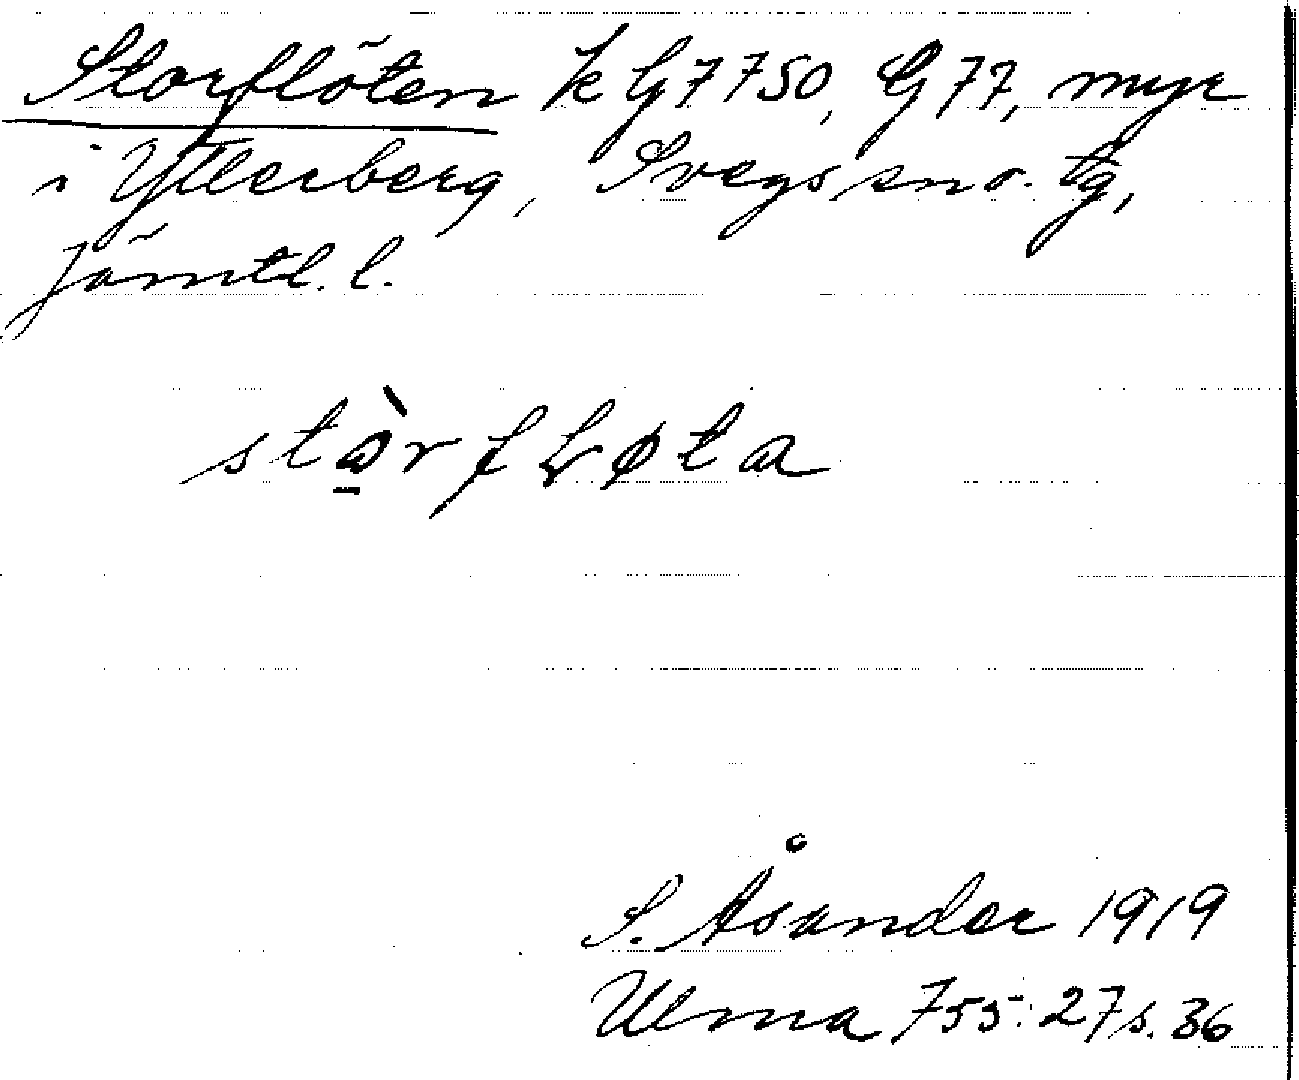 Storflöten k G7750, G77, myr
i Ytterberg, Svegs sn o. tg,
Jämtl. l.
stò̠rfLøta
S. Åsander 1919
Ulma 755:27 s. 36